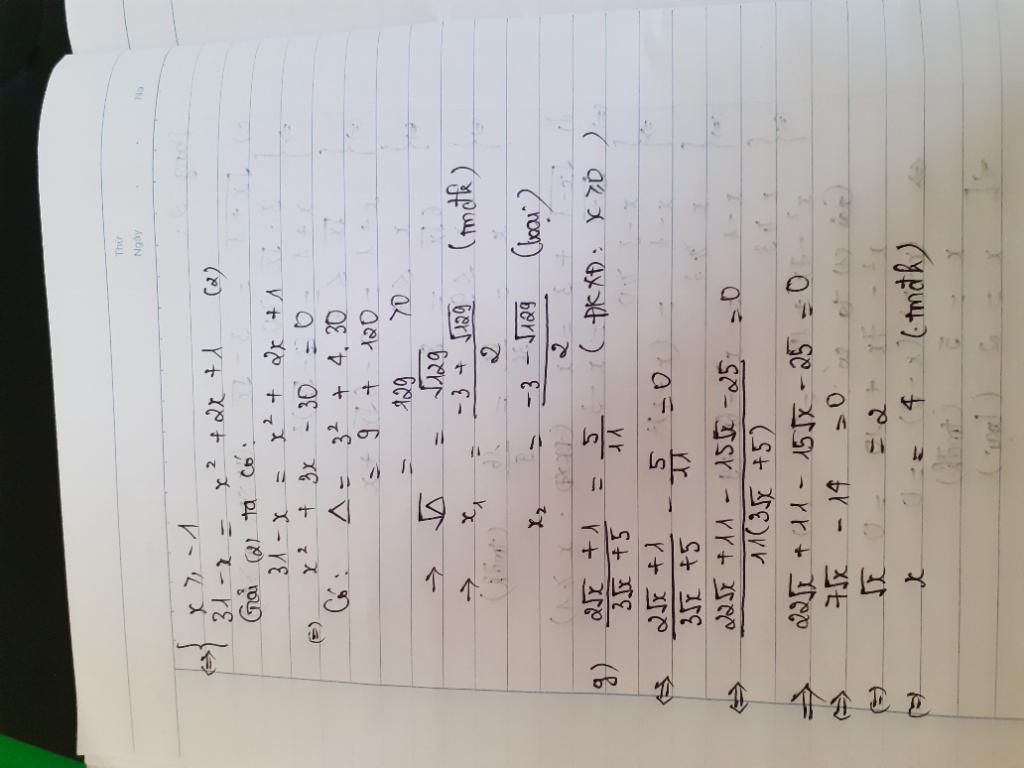 Thứ
Ngày . . No
⇔ { x ≥ -1
31 - x = x² + 2x + 1 (2)
Giải (2) ta có:
31 - x = x² + 2x + 1
(=) x² + 3x - 30 = 0
Có: Δ = 3² + 4.30
= 9 + 120
= 129 > 0
→ √Δ = √129
→ x₁ = (-3 + √129)/2 (tmđk)
x₂ = (-3 - √129)/2 (loại)
g) (2√x + 1)/(3√x + 5) = 5/11 (ĐKXĐ: x ≥ 0)
⇔ (2√x + 1)/(3√x + 5) - 5/11 = 0
⇔ (22√x + 11 - 15√x - 25)/(11(3√x + 5)) = 0
⇒ 22√x + 11 - 15√x - 25 = 0
⇔ 7√x - 14 = 0
(=) √x = 2
(=) x = 4 (tmđk)